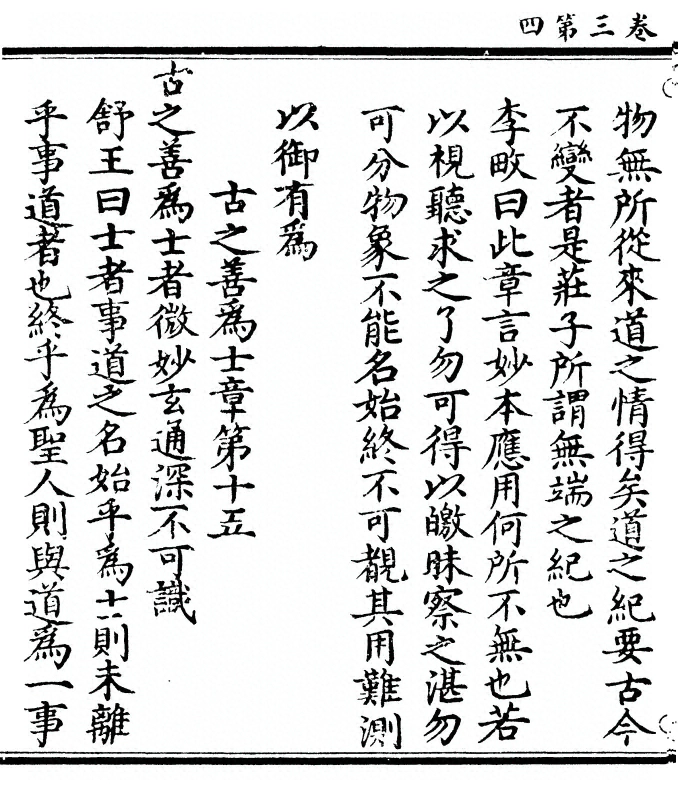 卷三第四
物無所從來道之情得矣道之紀要古今
不變者是莊子所謂無端之紀也
李畋曰此章言妙本應用何所不無也若
以視聽求之了勿可得以皦昧察之湛勿
可分物象不能名始終不可覩其用難測
以御有爲
古之善爲士章第十五
古之善爲士者微妙玄通深不可識
舒王曰士者事道之名始乎爲士則未離
乎事道者也終乎爲聖人則與道爲一事